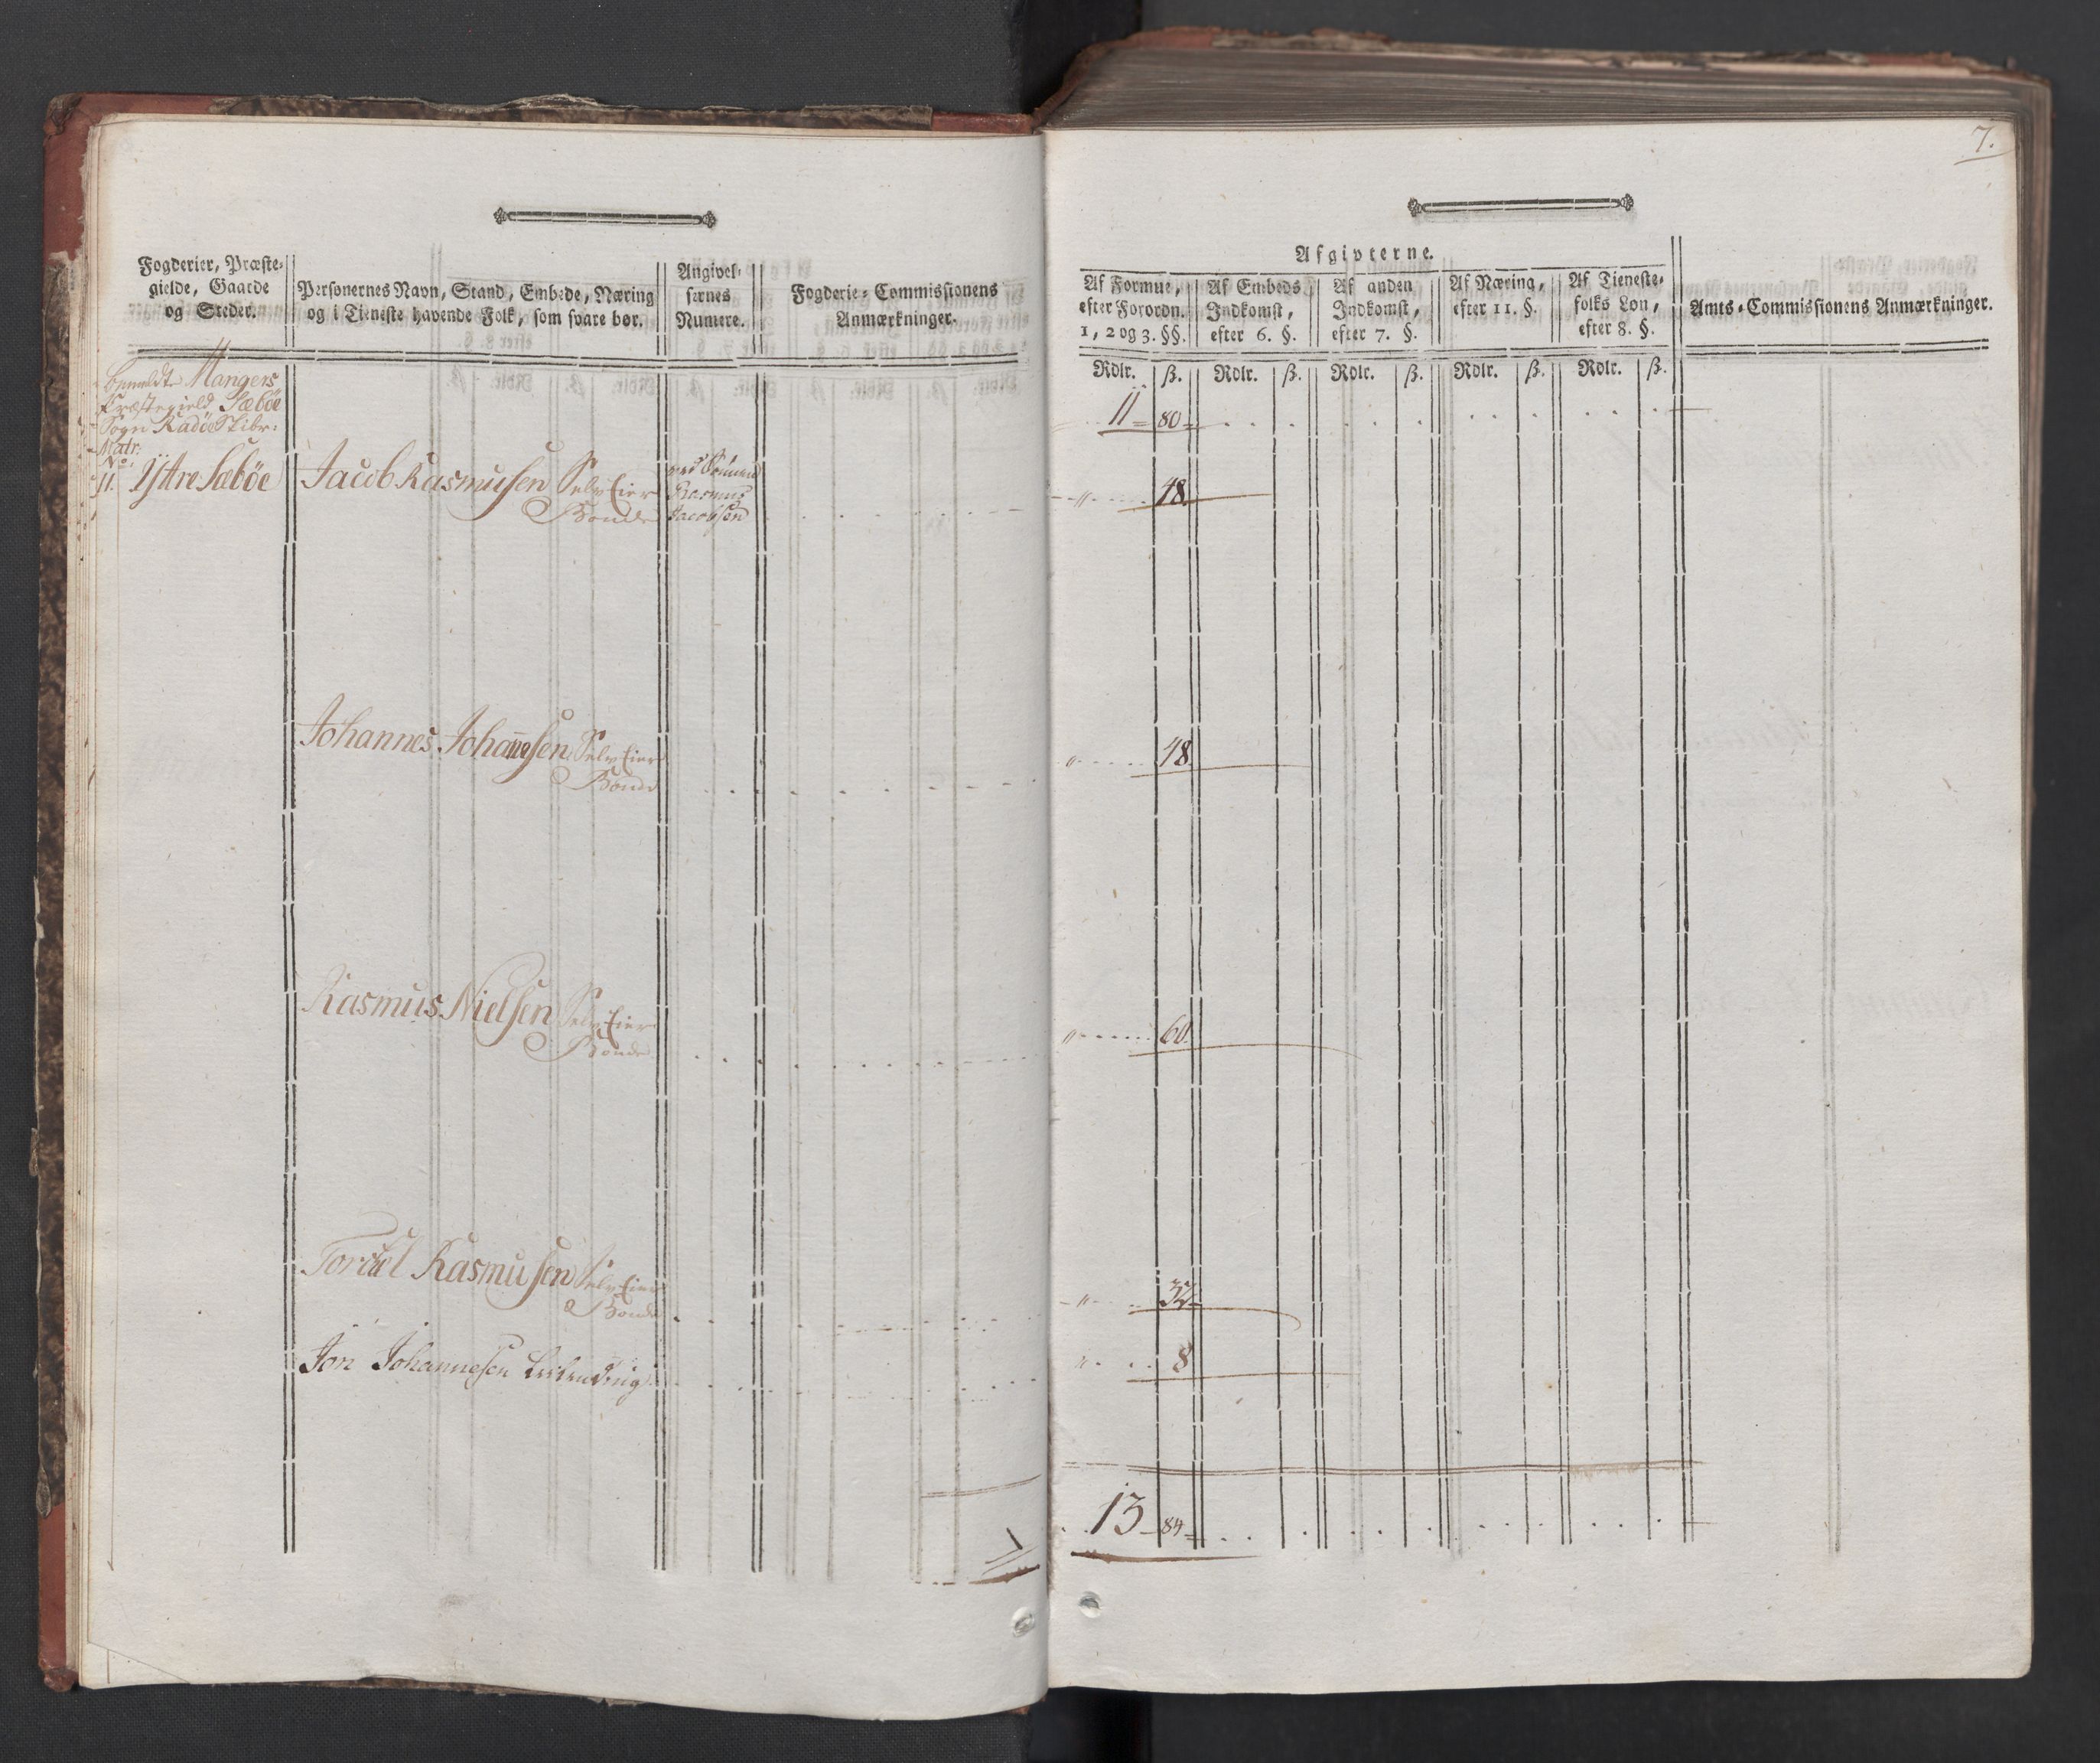 Fogderier, Præste-
gielde, Gaarde
og Steder.
Personernes Navn, Stand, Embede, Næring
og i Tieneste havende Folk, som svare bør.
Angivel-
sernes
Numere.
Fogderie-Commissionens
Anmærkninger.
bemeldte Mangers
Præstegield Sæbøe
Sogn Radøe Skibr:
Matr:
No:
11. Yttre Sæbøe
Jacob Rasmusen Selv Eier
Bonde
ved Sønnen
Rasmus
Jacobsen
Johannes Johannesen Selv Eier
Bonde
Rasmus Nielsen Selv Eier
Bonde
Torckel Rasmusen Selv Eier
Bonde
Jon Johannesen Leilending
7.
Afgivterne.
Af Formue,
efter Forordn.
1, 2 og 3. §§.
Af Embeds
Indkomst,
efter 6. §.
Af anden
Indkomst,
efter 7. §.
Af Næring,
efter 11. §.
Af Tieneste-
folks Løn,
efter 8. §.
Amts-Commissionens Anmærkninger.
Rdlr. ß. Rdlr. ß. Rdlr. ß. Rdlr. ß. Rdlr. ß.
11 80
" 48
" 48
" 60
" 32
" 8
13 84